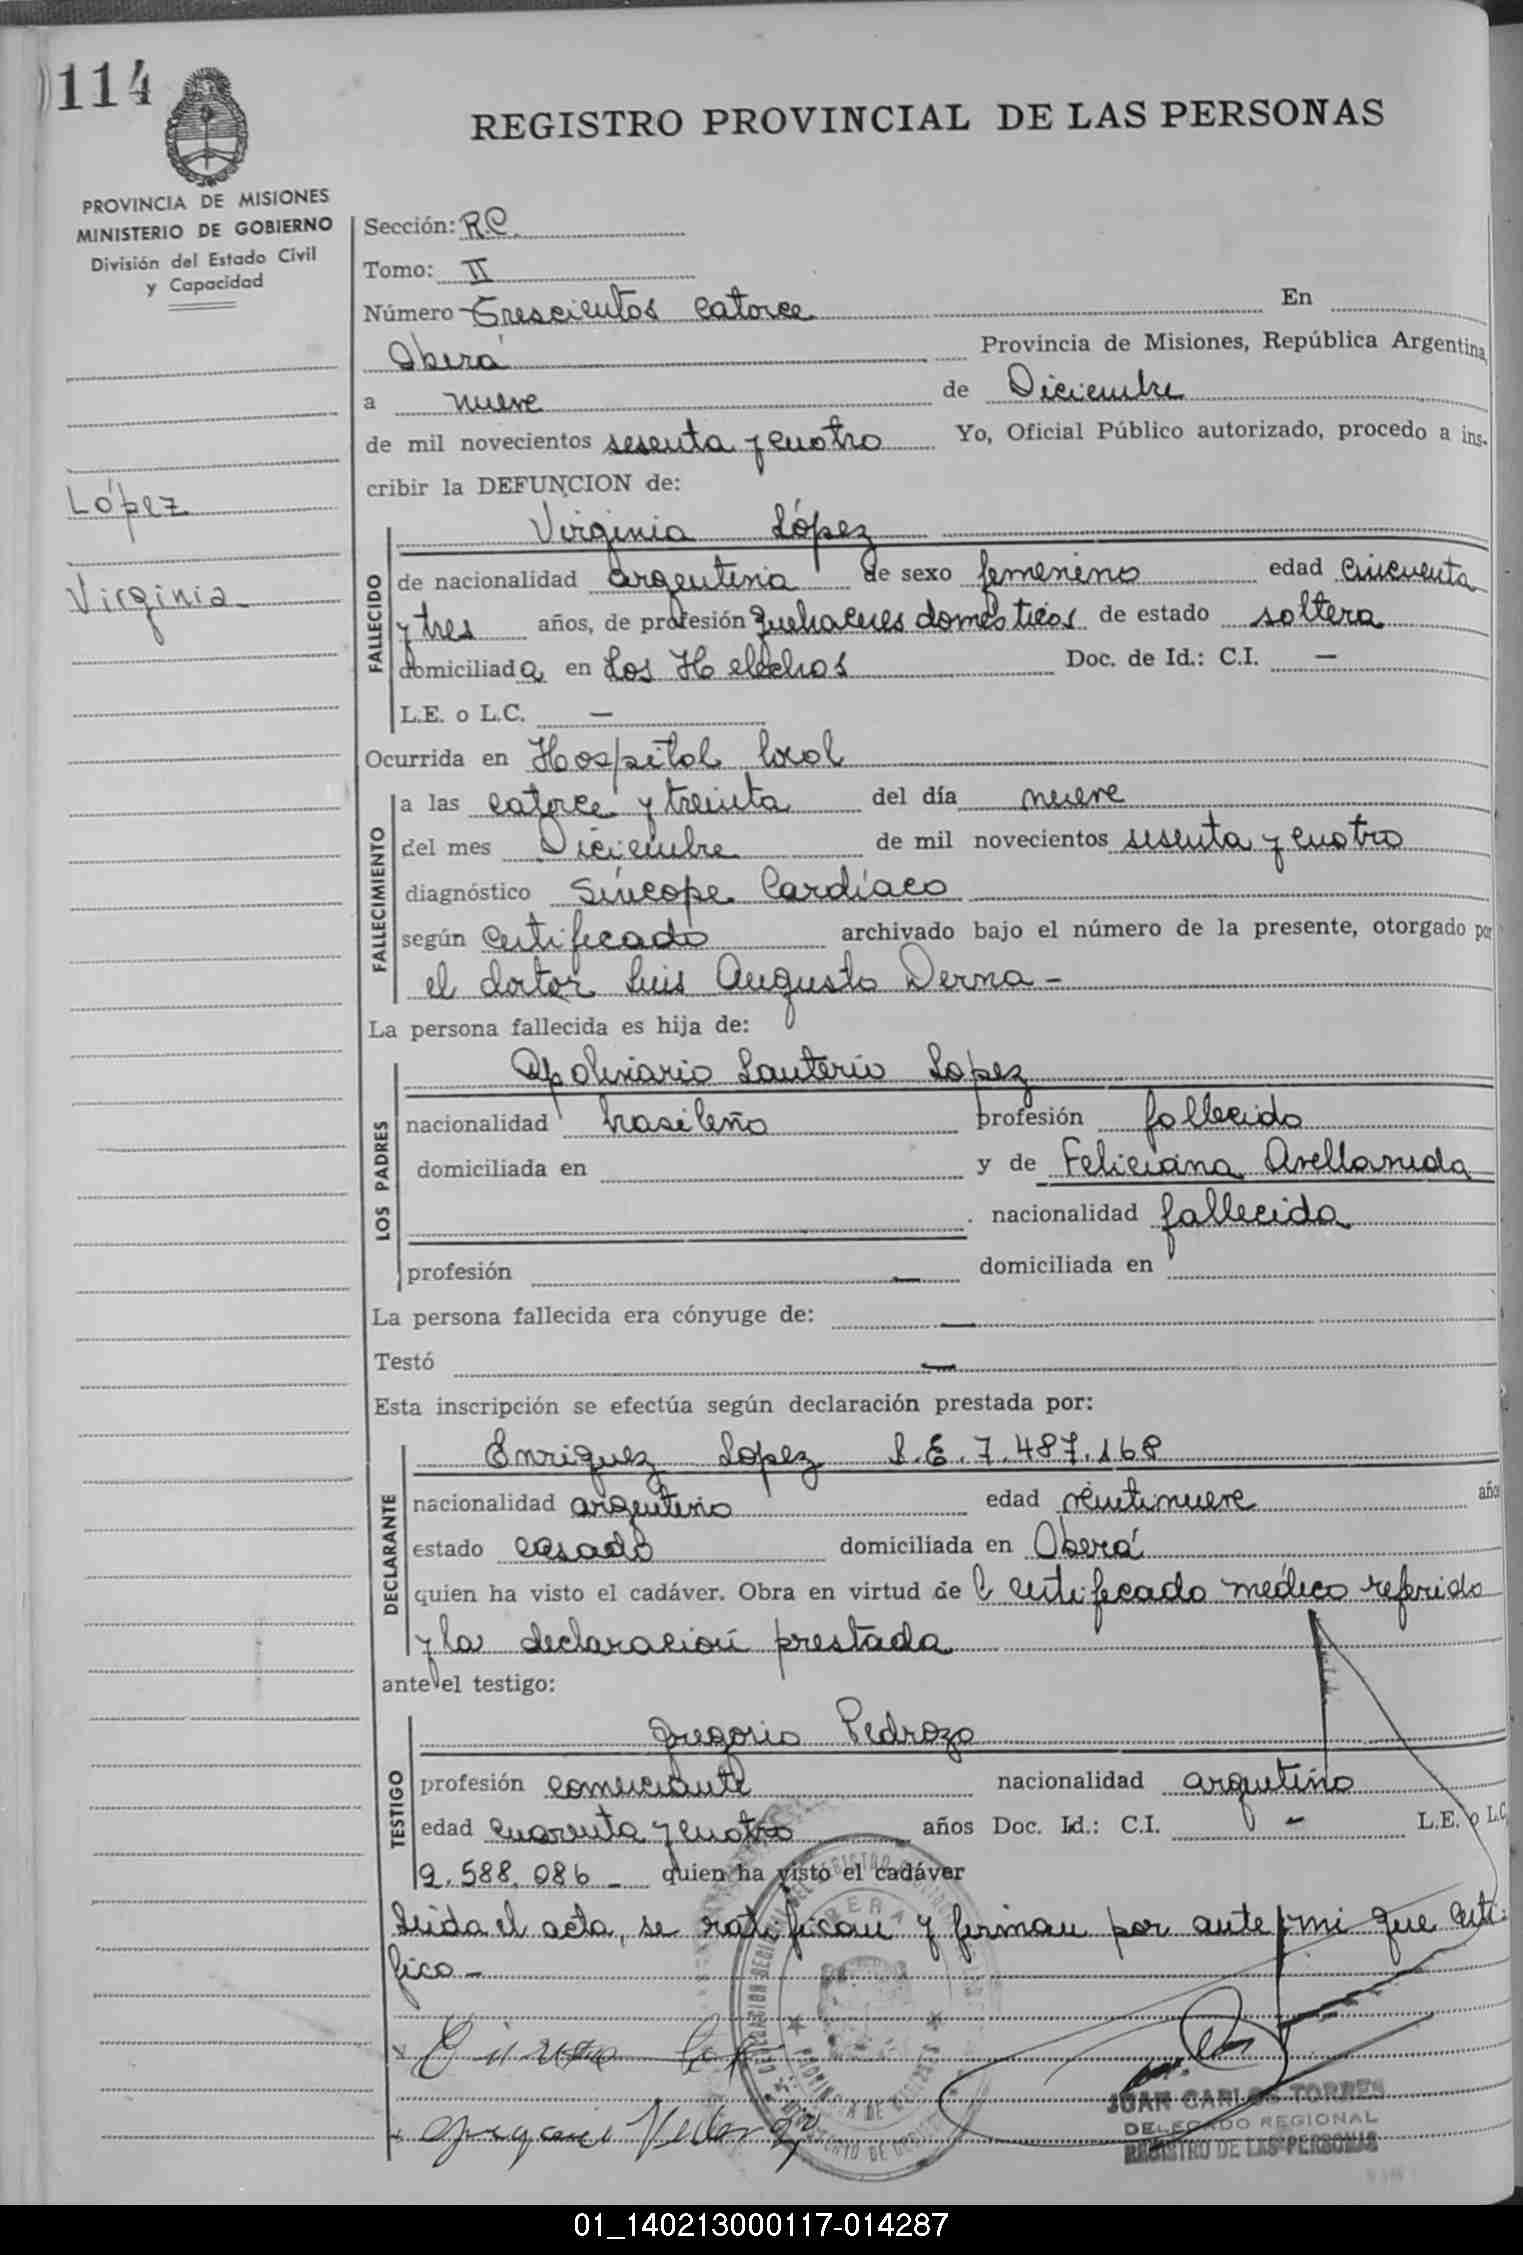 114
REGISTRO PROVINCIAL DE LAS PERSONAS
PROVINCIA DE MISIONES
MINISTERIO DE GOBIERNO
División del Estado Civil
y Capacidad
López
Virginia
Sección: R.C.
Tomo: II
Número Trescientos catorce En
Oberá Provincia de Misiones, República Argentina,
a nueve de Diciembre
de mil novecientos sesenta y cuatro Yo, Oficial Público autorizado, procedo a ins-
cribir la DEFUNCION de:
FALLECIDO
Virginia López
de nacionalidad argentina de sexo femenino edad cincuenta
y tres años, de profesión quehaceres domésticos de estado soltera
domiciliada en Los Helechos Doc. de Id.: C.I. —
L.E. o L.C. —
Ocurrida en Hospital local
FALLECIMIENTO
a las catorce y treinta del día nueve
del mes Diciembre de mil novecientos sesenta y cuatro
diagnóstico Síncope Cardíaco
según certificado archivado bajo el número de la presente, otorgado por
el doctor Luis Augusto Derna -
La persona fallecida es hija de:
LOS PADRES
Apolinario Lauterio Lopez
nacionalidad brasileño profesión fallecido
domiciliada en y de Feliciana Avellaneda
nacionalidad fallecida
profesión — domiciliada en
La persona fallecida era cónyuge de: —
Testó —
Esta inscripción se efectúa según declaración prestada por:
DECLARANTE
Enriquez Lopez L.E. 7.487.168
nacionalidad argentino edad veintinueve años
estado casado domiciliada en Oberá
quien ha visto el cadáver. Obra en virtud de l certificado médico referido
y la declaración prestada
ante el testigo:
TESTIGO
Gregorio Pedrozo
profesión comerciante nacionalidad argentino
edad cuarenta y cuatro años Doc. Id.: C.I. - L.E. o L.C.
2.588.086 - quien ha visto el cadáver
Leida el acta, se ratifican y firman por ante mi que certi-
fico -
JUAN CARLOS TORRES
DELEGADO REGIONAL
REGISTRO DE LAS PERSONAS
01_140213000117-014287